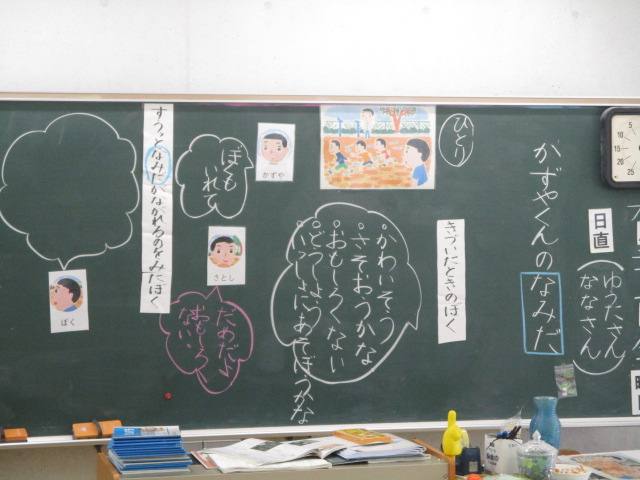 日直
ゆうたさん
ななさん
かずやくんのなみだ
ひとり
きづいたときのぼく
かわいそう
さそおうかな
おもしろくない
どうしよう
いっしょにあそぼうかな
かずや
ぼくも
いれて
さとし
だめだよ
おもしろく
ない
すうっとなみだがながれるのをみたぼく
ぼく
5
10
15
20
25